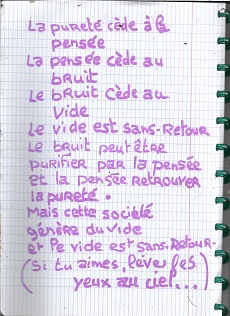 La pureté cède à la
pensée
La pensée cède au
bruit
Le bruit cède au
vide
Le vide est sans-retour
Le bruit peut être
purifier par la pensée
et la pensée retrouver
la pureté.
Mais cette société
génère du vide
et le vide est sans-retour.
(si tu aimes, lève les
yeux au ciel...)